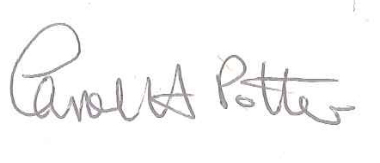 Carol A Potter